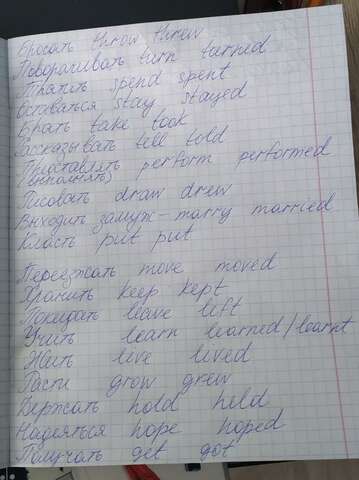 Бросать throw threw
Поворачивать turn turned
Тратить spend spent
Оставаться stay stayed
Брать take took
Рассказывать tell told
Представлять perform performed
(выполнять)
Рисовать draw drew
Выходить замуж - marry married
Класть put put
Переезжать move moved
Хранить keep kept
Покидать leave left
Учить learn learned/learnt
Жить live lived
Расти grow grew
Держать hold held
Надеяться hope hoped
Получать get got